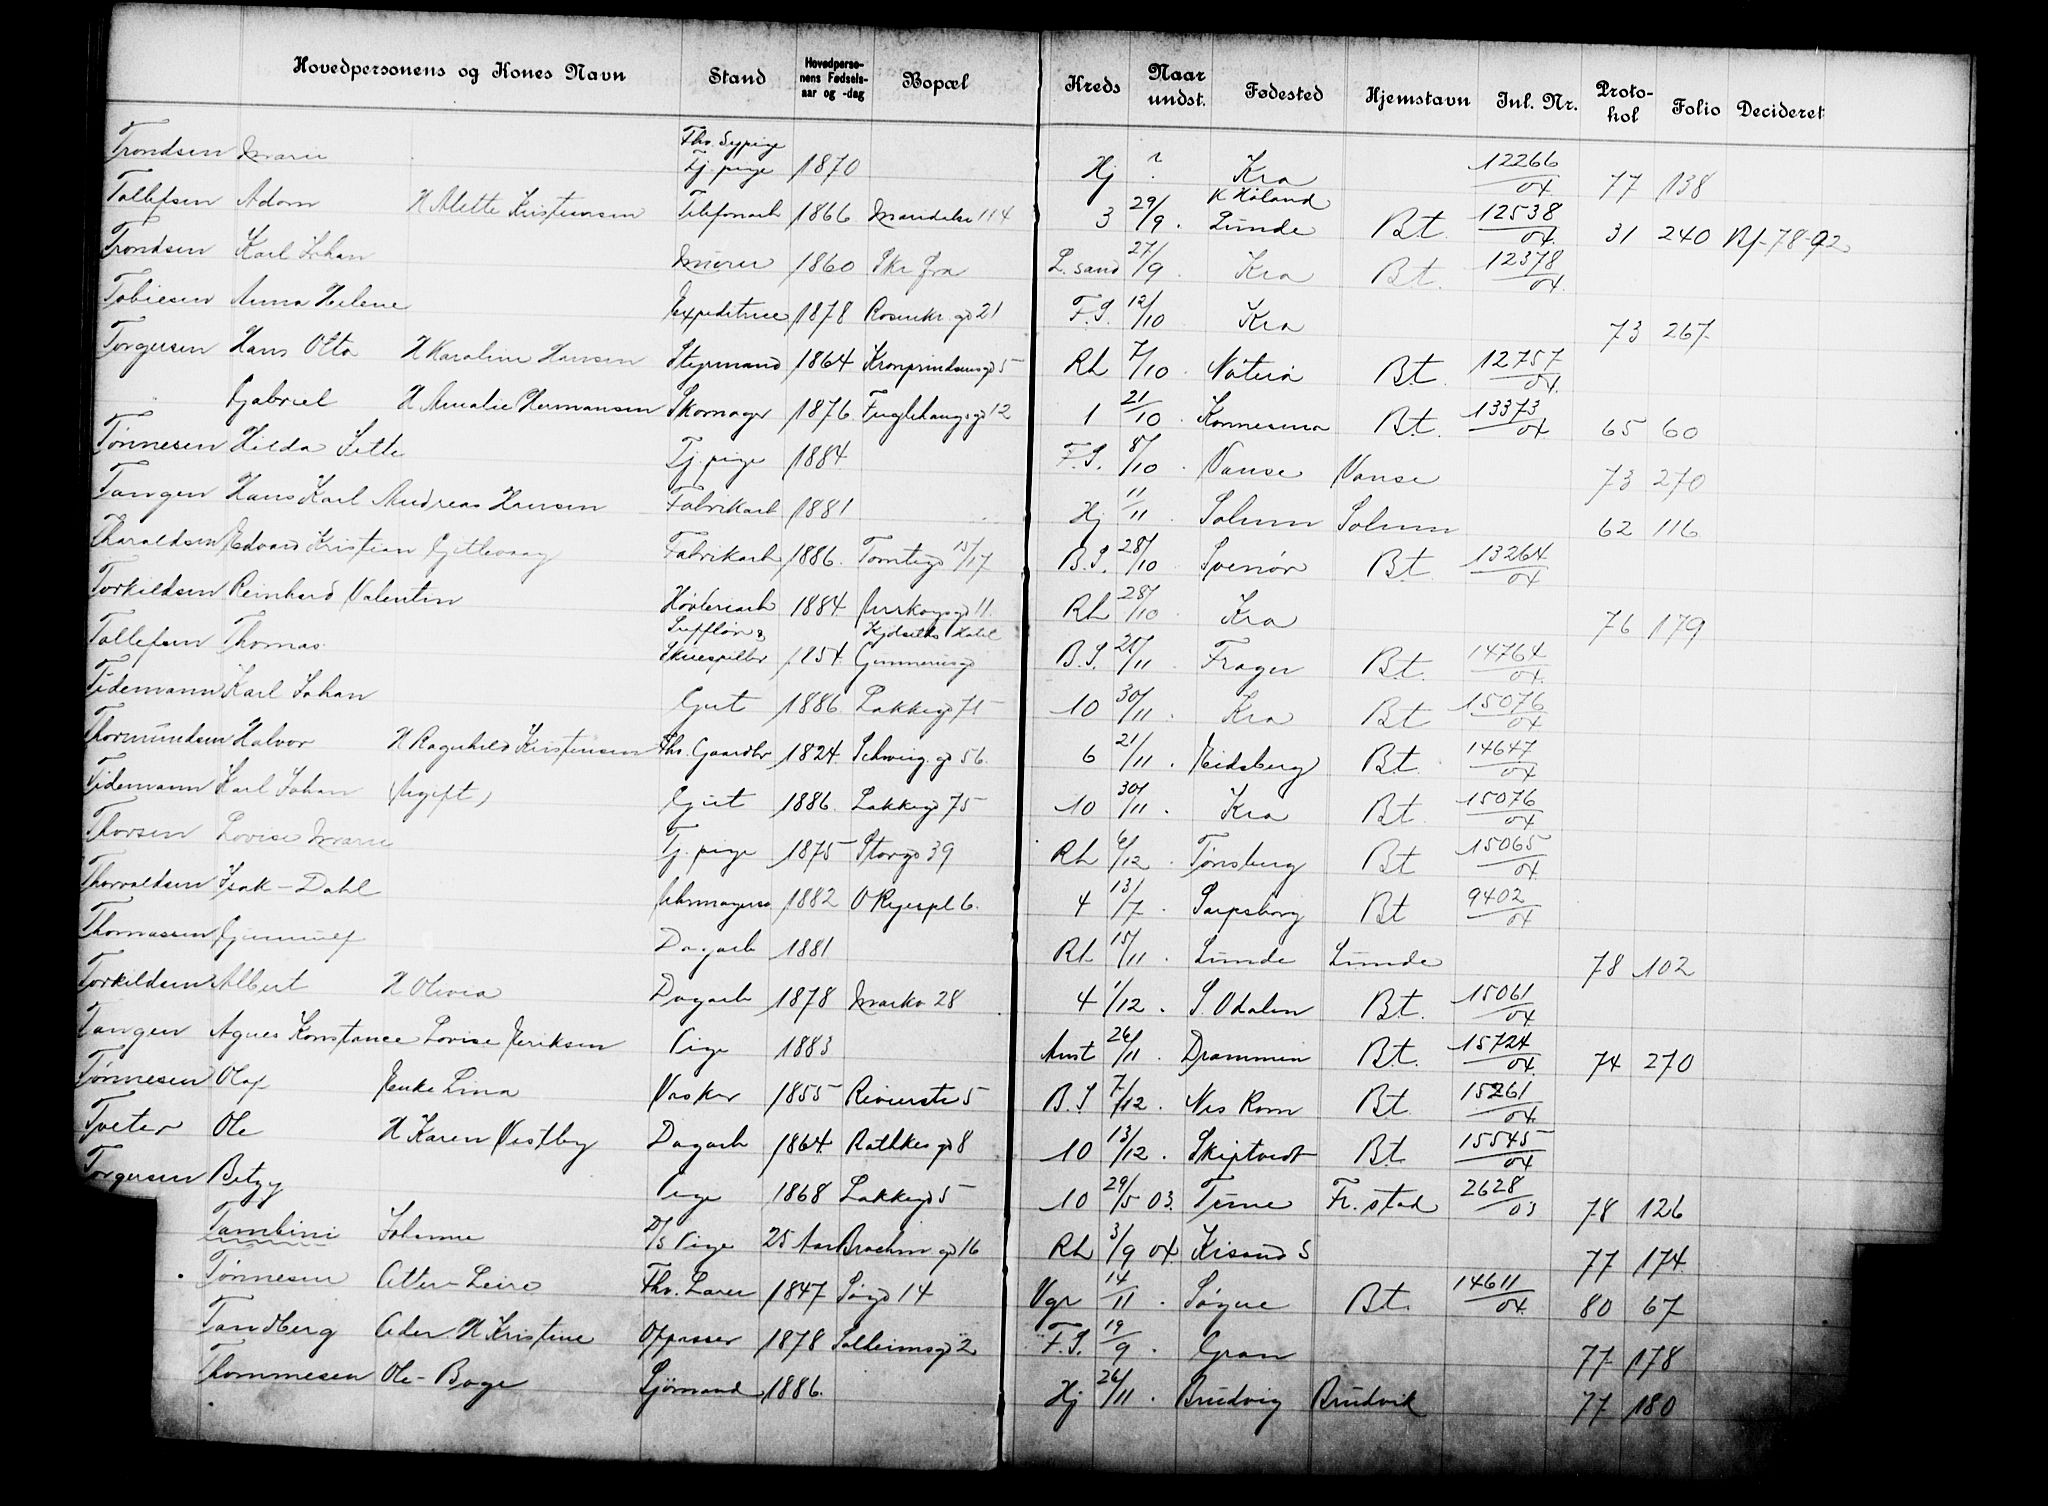 Hovedpersonens og Kones Navn Stand Hovedperso-nens Fødsels-aar og -dag Bopæl Kreds Naar undst. Fødested Hjemstavn Inl. Nr. Proto-kol Folio Decideret
Trondsen Marie Fhv. Sypige Tj. pige 1870 Hj ? Kra 12266/04 77 138
Tollefsen Adam H Alette Kristiansen Telefonarb 1866 Maridalsv 114 3 29/9 K Høland Lunde Bt. 12538/04 31 240 Nf-78-92
Trondsen Karl Johan Murer 1860 Skr fra L. sand 27/9 Kra Bt. 12378/04
Tobiesen Anna Helene Expeditrice 1878 Rosenkr. gd 21 F.S. 12/10 Kra 73 267
Torgersen Hans Otto H Karoline Hansen Styrmand 1864 Kronprindsensgd 5 Rh 7/10 Nøterø Bt. 12757/04
" Gabriel H Amalie Hermansen Skomager 1876 Fuglehaugsgd 12 1 21/10 Konnerud Bt. 13373/04 65 60
Tønnesen Hilda Jette Tj. pige 1884 F.S. 8/10 Vanse Vanse 73 270
Tangen Hans Karl Andreas Hansen Fabrikarb 1881 Hj 11/11 Solum Solum 62 116
Tharaldsen Edvard Kristian Fabrikarb 1886 Tomtegd 15/17 B.S. 28/10 Svenør Bt. 13264/04
Torkildsen Reinhard Valentin Høvleriarb 1884 11. Rh 28/10 Kra 76 179
Tollefsen Thomas Sufflør & Skuespiller 1854 Hotel Gunnerusgd B.S. 21/11 Frogn Bt. 14764/04
Tidemann Karl Johan Gut 1886 Lakkegd 75 10 30/11 Kra Bt 15076/04
Thormundsen Halvor H Ragnhild Kristensen Fhv. Gaardbr 1824 Schweig. gd 56 6 21/11 Eidsberg Bt. 14647/04
Tidemann Karl Johan (Ugift) Gut 1886 Lakkegd 75 10 30/11 Kra Bt 15076/04
Thorsen Lovise Marie Tj. pige 1875 Storgd 39 Rh 6/12 Tønsberg Bt 15065/04
Thorvaldsen Isak-Dahl Uhrmagersv 1882 O Ryespl 6. 4 13/7 Sarpsborg Bt 9402/04
Thomassen Gunnulf Dagarb 1881 Rh 15/11 Lunde Lunde 78 102
Torkildsen Albert H Olivia Dagarb 1878 Markv 28 4 1/12 S. Odalen Bt. 15061/04
Tangen Agnes Konstance Lovise Eriksen Pige 1883 Anst 26/11 Drammen Bt. 15724/04 74 270
Tønnesen Olaf Enke Lina Vasker 1855 Revierstr 5 B.S 7/12 Nes Rom Bt 15261/04
Tveter Ole H Karen Vestby Dagarb 1864 Rathkes gd 8 10 13/12 Skiptvedt Bt 15545/04
Torgersen Betzy Pige 1868 Lakkegd 5 10 29/5 03 Tune Fr. stad 2628/03 78 126
Tambini Johanne D/S Pige 25 Aar Brochm gd 16 Rh 3/9 04 Krsand S 77 174
Tønnesen Atter-Leire Fhv. Lærer 1847 Søgd 14 Vgr 14/11 Søgne Bt. 14611/04 80 67
Tandberg Peder H Kristine Oppasser 1878 Solheimsgd 2 F.S. 19/9 Gran 77 178
Thommesen Ole-Boge Sjømand 1886 Hj 26/11 Brudvig Brudvik 77 180